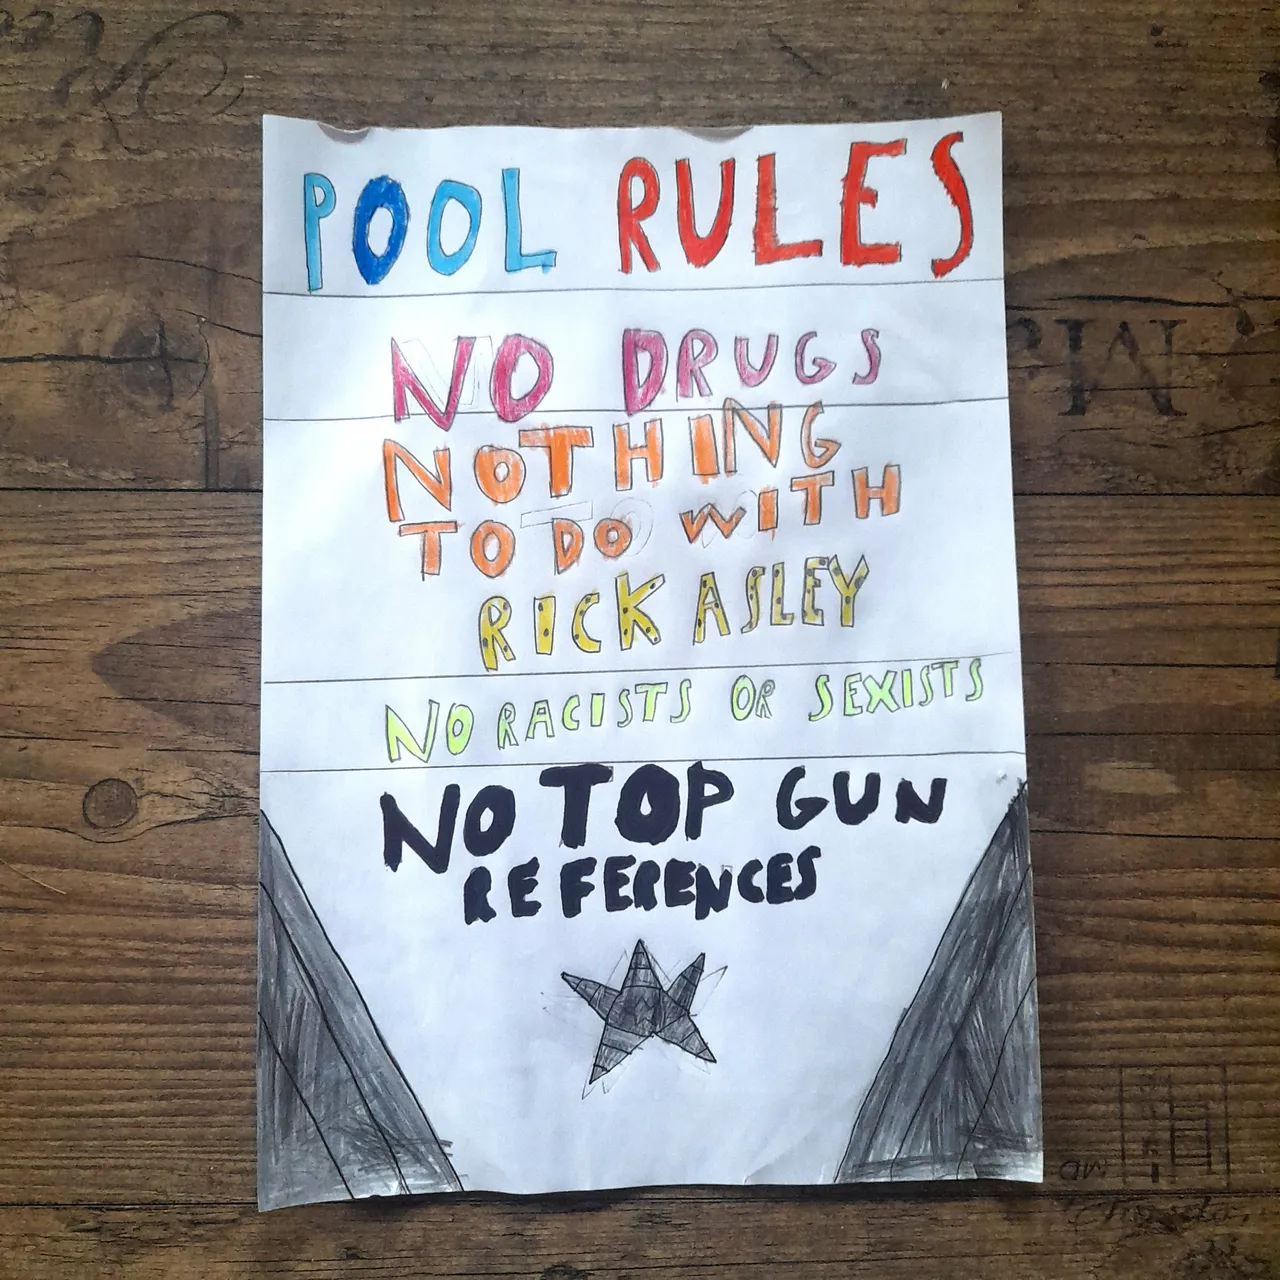 POOL RULES
NO DRUGS
NOTHING
TO DO WITH
RICK ASLEY
NO RACISTS OR SEXISTS
NO TOP GUN
REFERENCES